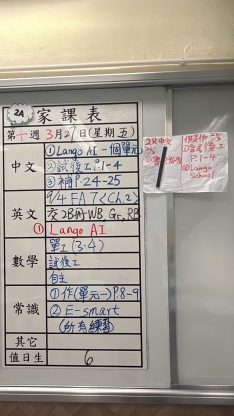 2A
家課表
第十週 3月27日(星期五)
中文
①Lango AI-一個單元
②試後工P.1-4
③補P.24-25
英文
9/4 FA 7 (Ch.2)
交2B冊WB, Gr, RB
① Lango AI
數學
單工(3.4)
試後工
自主
常識
①作(單元一)P.8-9
② E-smart
(所有練習)
其它
值日生
6
2A中文
試後工
P.1-4
Lango
School